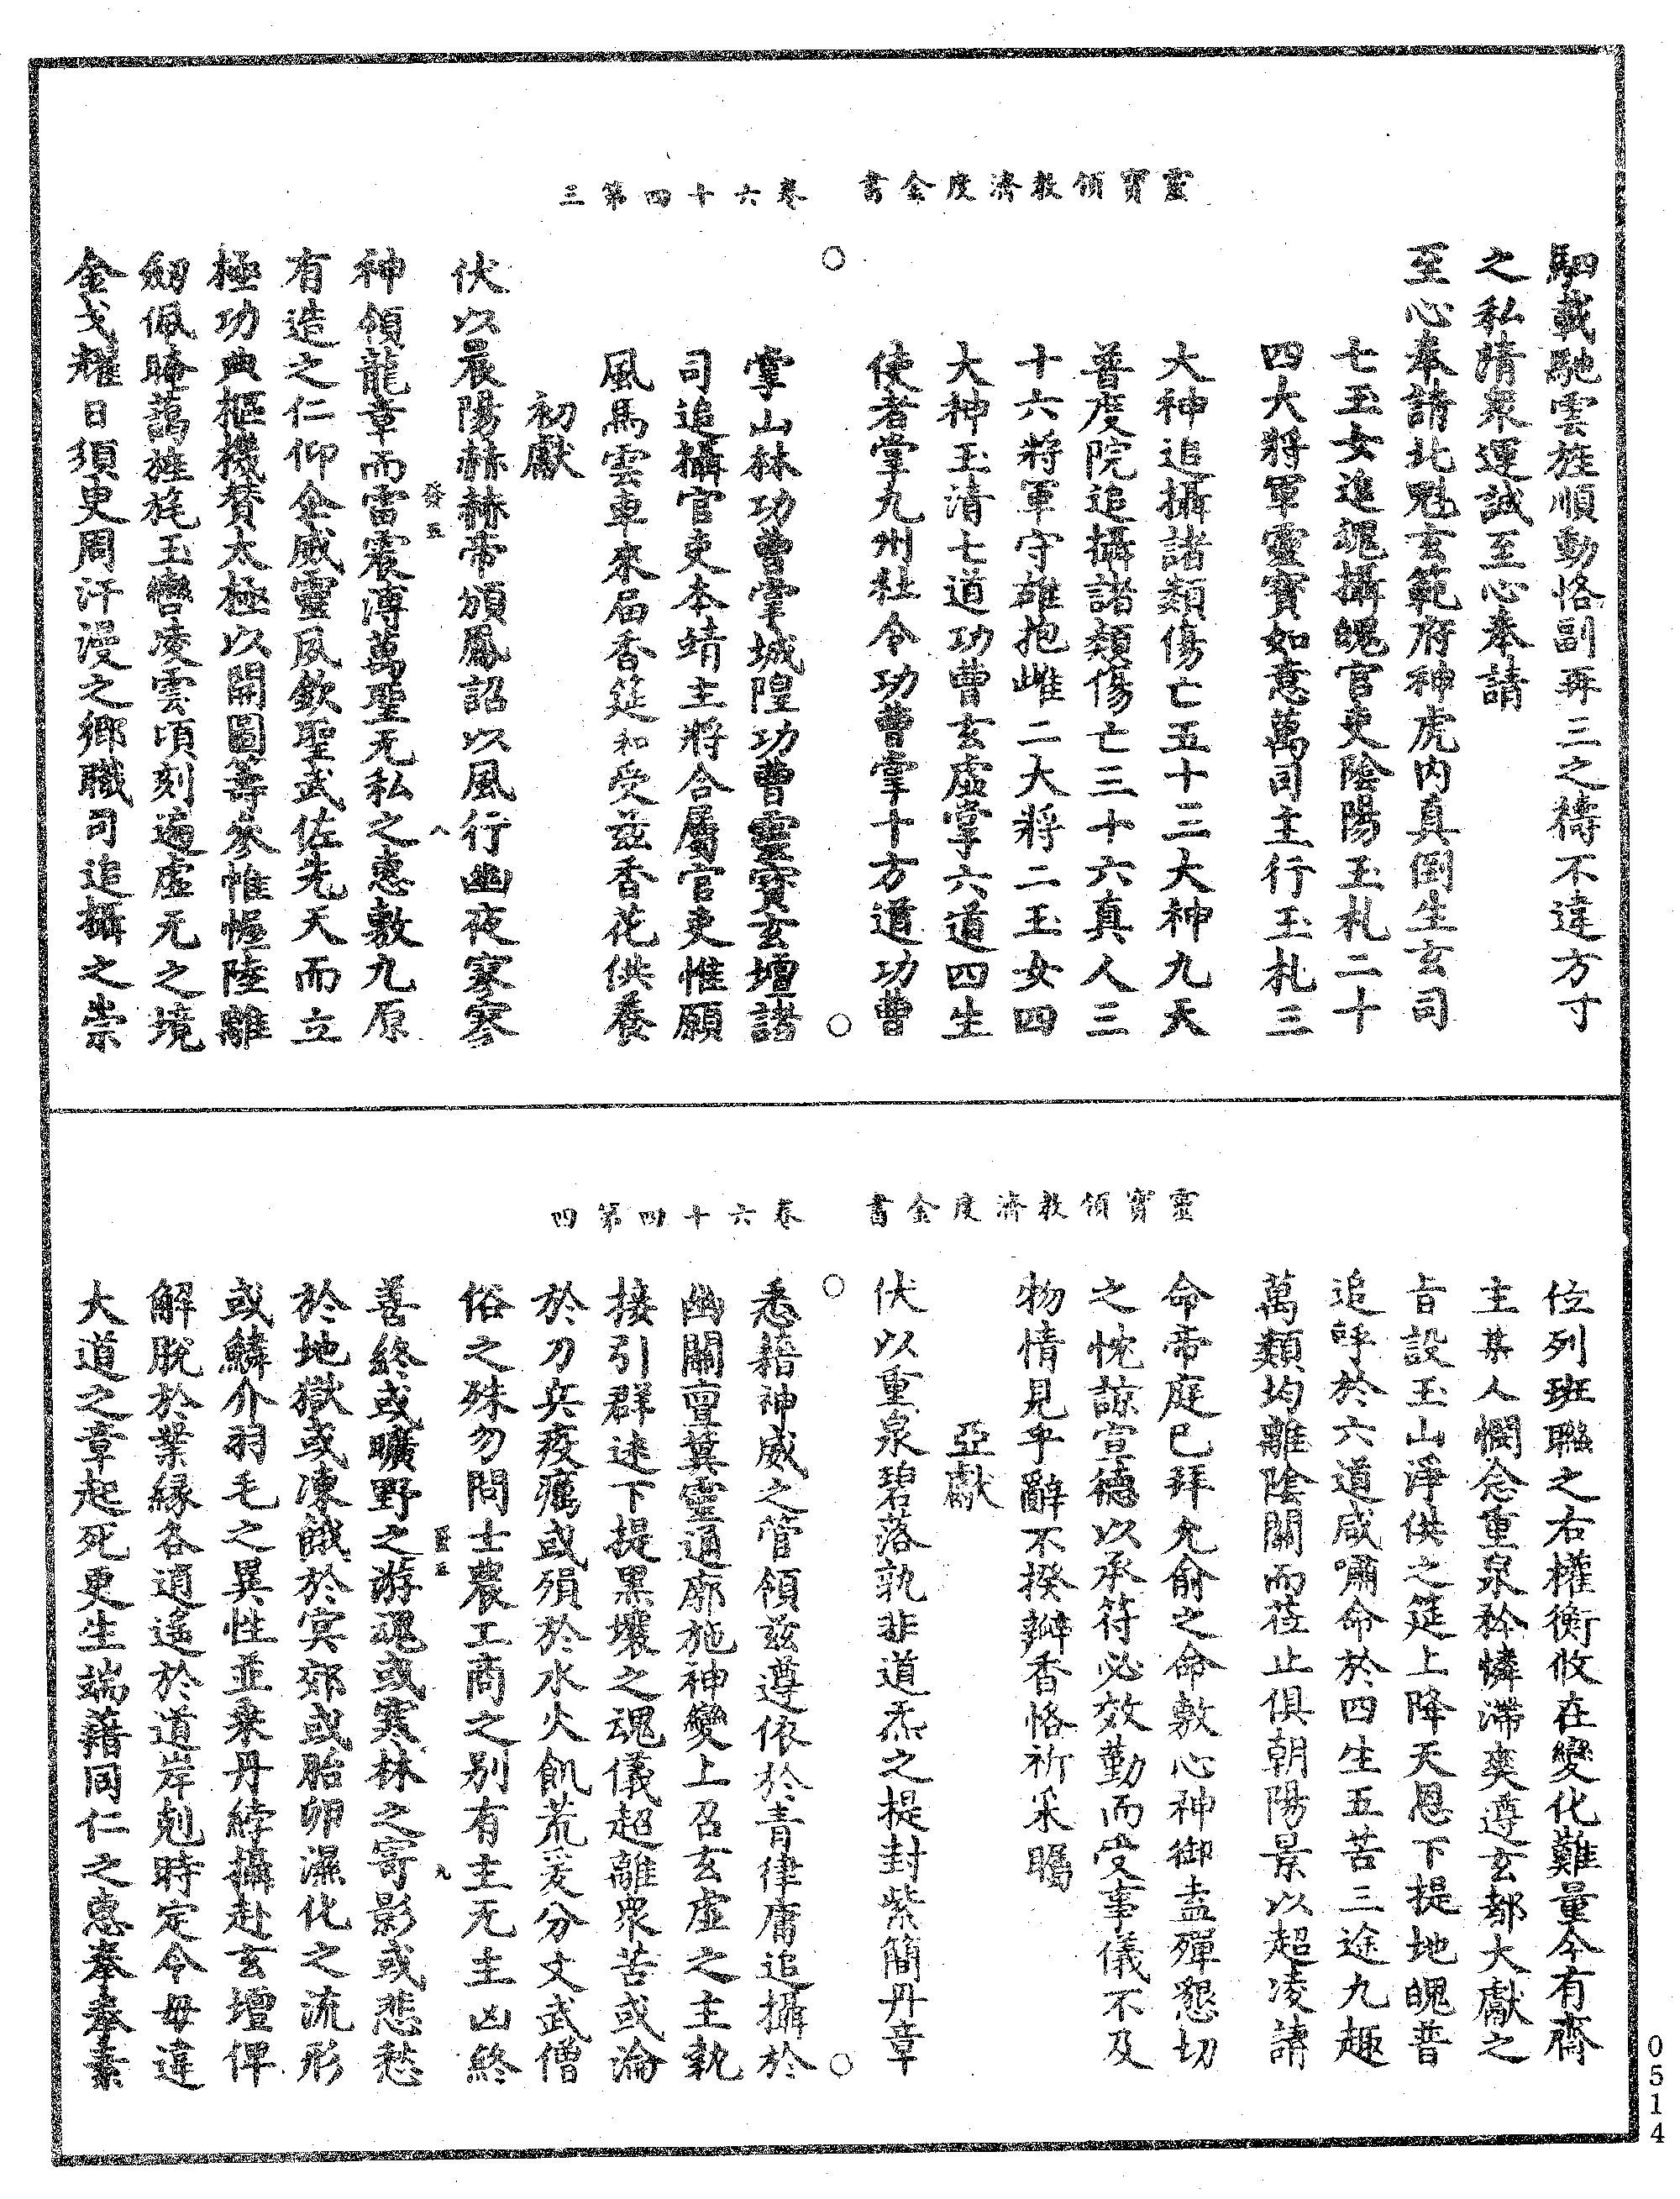 靈寶領教濟度金書　卷六十四第三
駟載馳雲旌順動恪副再三之禱不違方寸
之私請衆運誠至心奉請
至心奉請北魁玄範府神虎內真倒生玄司
七玉女追魂攝魄官吏陰陽玉札二十
四大將軍靈寶如意萬司主行玉札三
大神追攝諸類傷亡五十三大神九天
普度院追攝諸類傷亡三十六真人三
十六將軍守雄抱雌二大將二玉女四
大神玉清七道功曹玄虛掌六道四生
使者掌九州社令功曹掌十方道功曹
掌山林功曹掌城隍功曹靈寶玄壇諸
司追攝官吏本靖主將合屬官吏惟願
風馬雲車來届香筵和受茲香花供養
初獻
伏以晨陽赫赫帝頒鳳詔以風行幽夜寥寥
神領龍章而雷震溥萬聖无私之惠敷九原
有造之仁仰企威靈夙欽聖武佐先天而立
極功典樞機贊太極以開圖籌參帷幄陸離
劒佩晻藹旌旄玉轡凌雲頃刻遍虛无之境
金戈耀日須臾周汗漫之鄉職司追攝之崇
靈寶領教濟度金書　卷六十四第四
位列班聯之右權衡攸在變化難量今有齋
主某人憫念重泉矜憐滯爽遵玄都大獻之
旨設玉山淨供之筵上降天恩下提地魄普
追呼於六道咸嘯命於四生五苦三途九趣
萬類均離陰關而莅止俱朝陽景以超凌請
命帝庭已拜允俞之命敷心神御盍殫懇切
之忱諒宣德以承符必效勤而受事儀不及
物情見乎辭不揆瓣香恪祈采矚
亞獻
伏以重泉碧落孰非道炁之提封紫簡丹章
悉藉神威之管領茲遵依於青律庸追攝於
幽關亶冀靈通廓施神變上召玄虛之主執
接引群迷下提黑壤之魂儀超離衆苦或淪
於刀兵疫癘或殞於水火飢荒爰分文武僧
俗之殊勿問士農工商之别有主无主凶終
善終或曠野之游魂或寒林之寄影或悲愁
於地獄或凍餓於冥郊或胎卵濕化之流形
或鱗介羽毛之異性並乘丹綍攝赴玄壇俾
解脫於業緣各逍遥於道岸剋時定令毋違
大道之章起死更生端藉同仁之惠拳拳素
0514